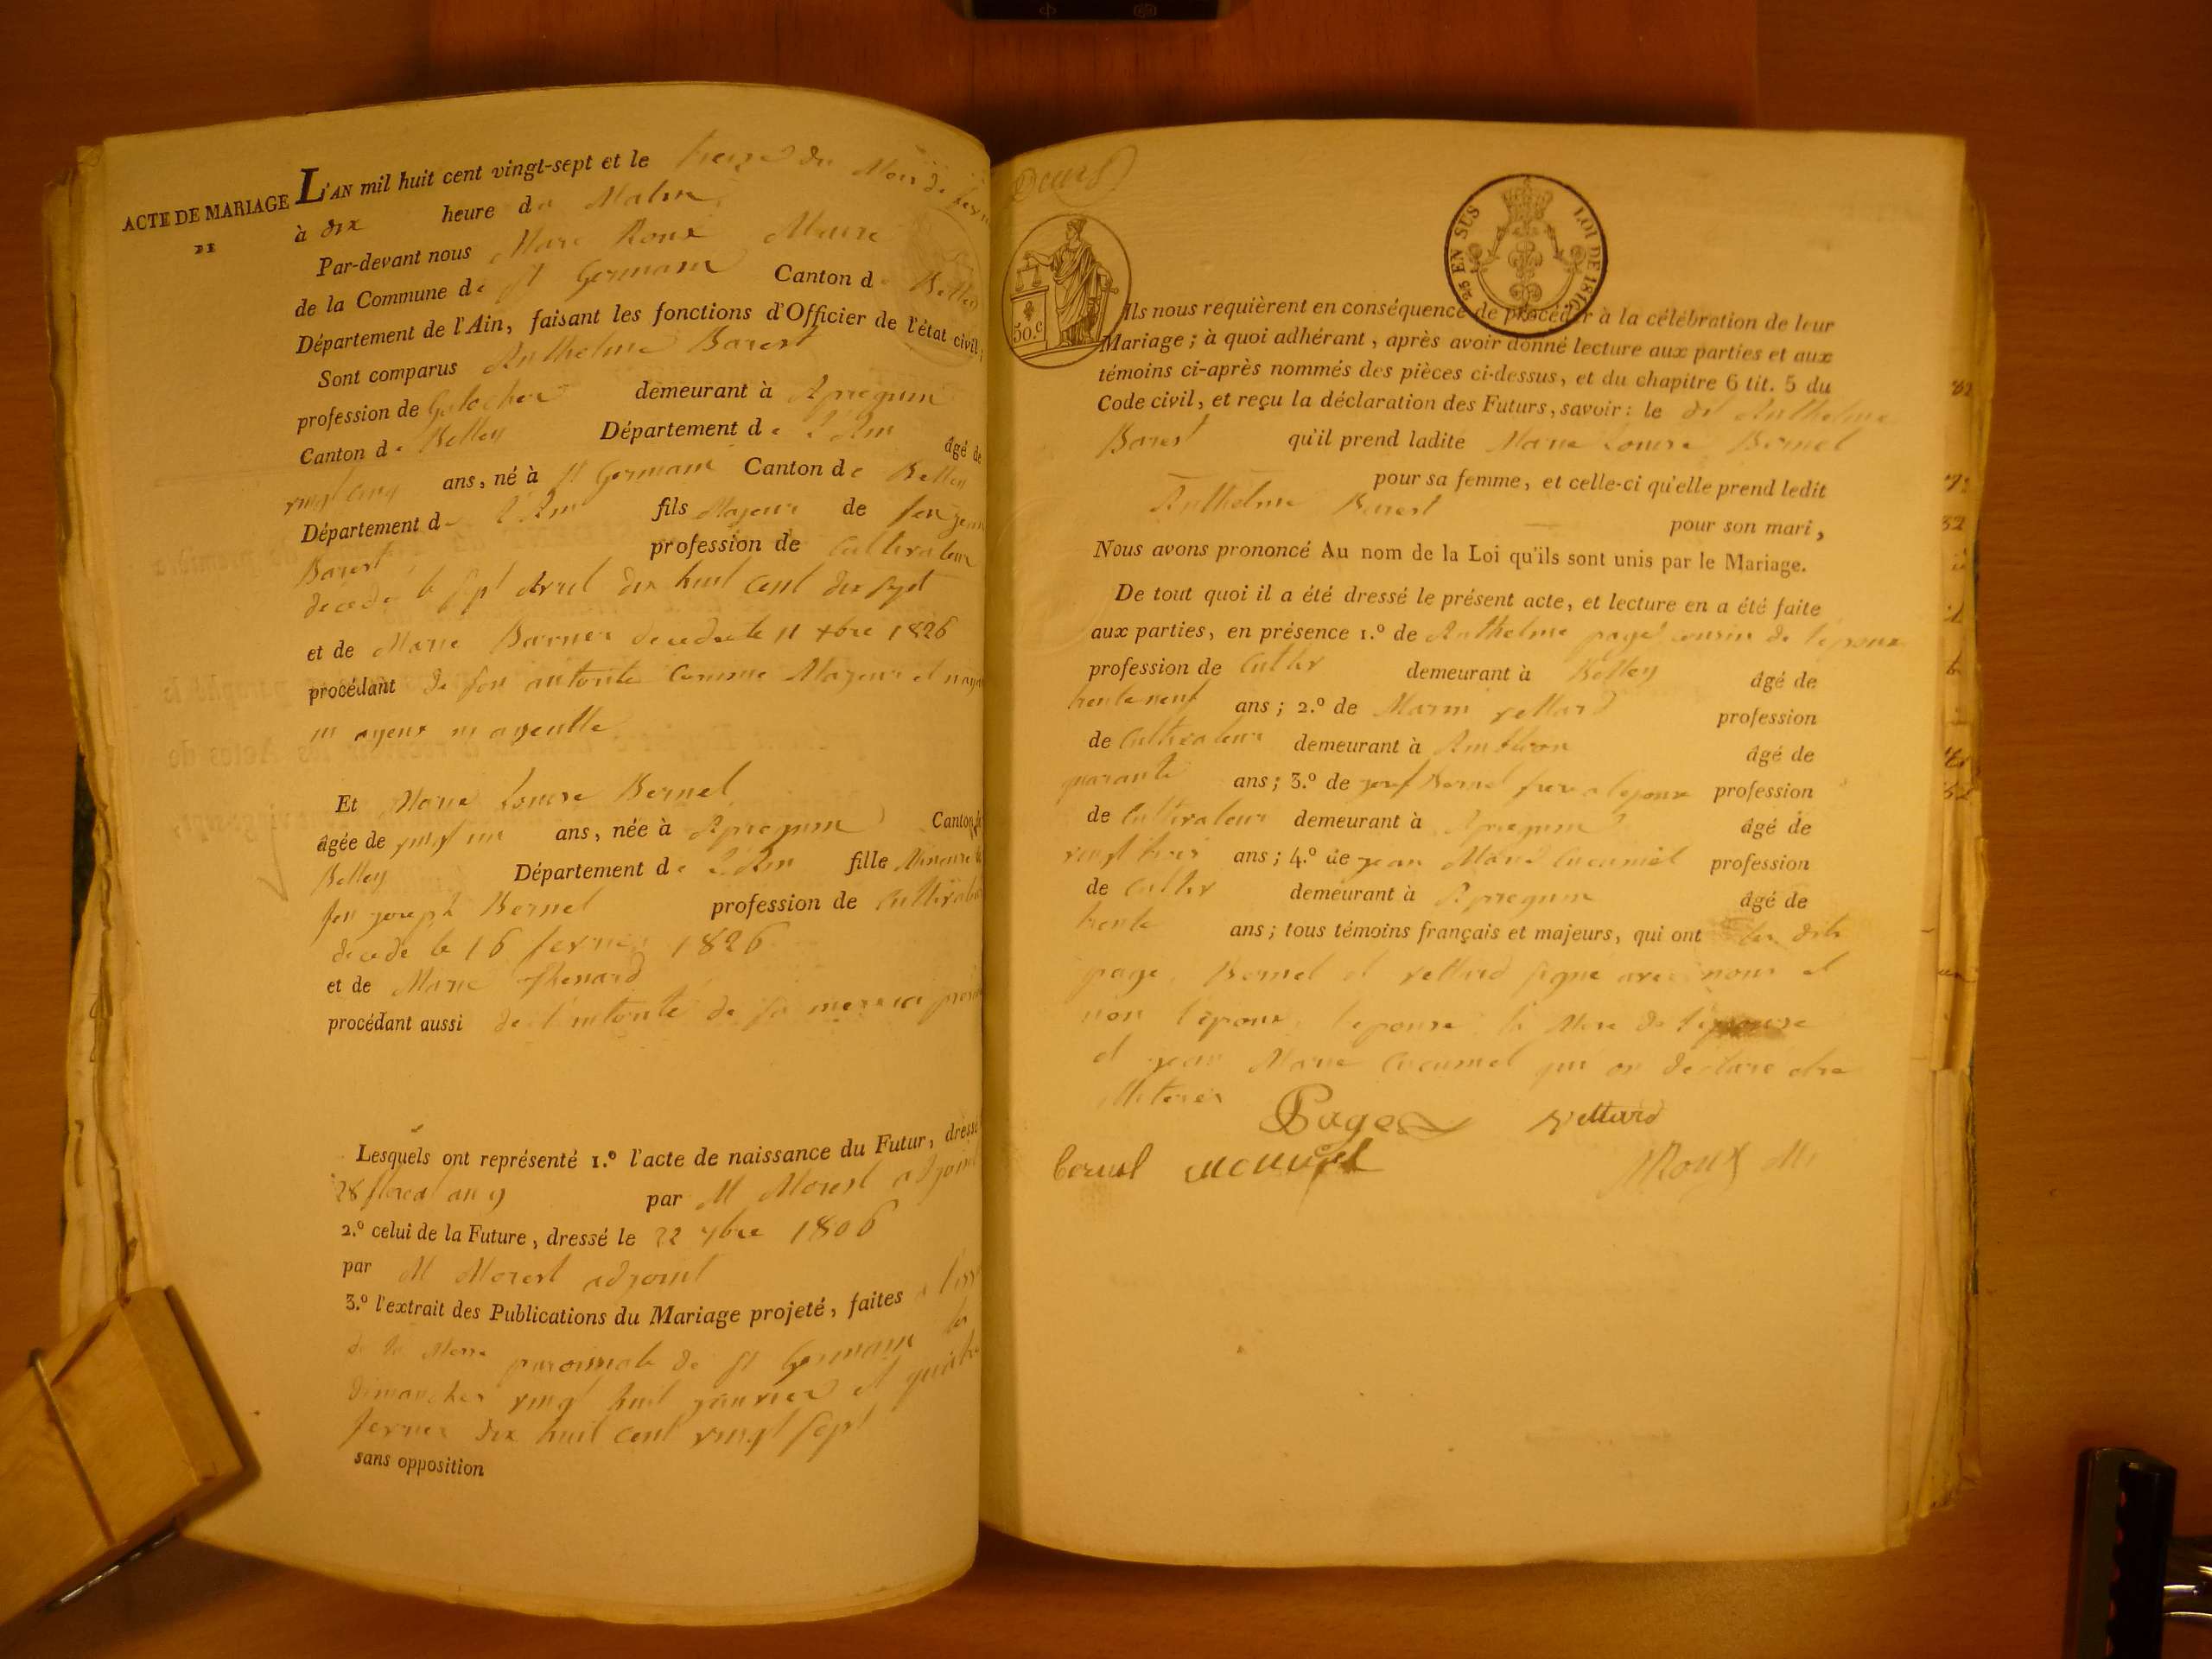 ACTE DE MARIAGE
DE
L'AN mil huit cent vingt-sept et le treize du Mois de fevr
à dix heure du Matin
Par-devant nous Marc Roux Maire
de la Commune de St Germain Canton de Belley
Département de l'Ain, faisant les fonctions d'Officier de l'état civil;
Sont comparus Anthelme Barest
profession de Galocher demeurant à Apregnin
Canton de Belley Département de l'Ain âgé de
vingt cinq ans, né à St Germain Canton de Belley
Département de l'Ain fils Majeur de feu
Barest profession de Cultivateur
decede le sept Avril dix huit cent dix sept
et de Marie Barner decedee le 11 xbre 1826
procédant de son autorité Comme Majeur et
ni ayeux ni ayeulle
Et Marie Louise Bernel
âgée de vingt un ans, née à Apregnin Canton de
Belley Département de l'Ain fille Mineure de
feu joseph Bernel profession de Cultivateur
decede le 16 fevrier 1826
et de Marie Thenard
procédant aussi de l'autorité de sa mere ici
Lesquels ont représenté 1.º l'acte de naissance du Futur, dressé
28 floreal an 9 par M Morest adjoint
2.º celui de la Future, dressé le 22 7bre 1806
par M Morest adjoint
3.º l'extrait des Publications du Mariage projeté, faites a l'iss
de la Messe paroissiale de St Germain les
dimanches vingt huit janvier et quatre
fevrier dix huit cent vingt sept
sans opposition
50.c
25 EN SUS LOI DE 1816
Ils nous requièrent en conséquence de procéder à la célébration de leur
Mariage; à quoi adhérant, après avoir donné lecture aux parties et aux
témoins ci-après nommés des pièces ci-dessus, et du chapitre 6 tit. 5 du
Code civil, et reçu la déclaration des Futurs, savoir: le dit Anthelme
Barest qu'il prend ladite Marie Louise Bernel
pour sa femme, et celle-ci qu'elle prend ledit
Anthelme Barest pour son mari,
Nous avons prononcé Au nom de la Loi qu'ils sont unis par le Mariage.
De tout quoi il a été dressé le présent acte, et lecture en a été faite
aux parties, en présence 1.º de Anthelme page cousin de l'epoux
profession de Cultiv demeurant à Belley âgé de
trente neuf ans; 2.º de Marin vettard profession
de Cultivateur demeurant à Ambleon âgé de
quarante ans; 3.º de josef Bernel frere a l'epouse profession
de Cultivateur demeurant à Apregnin âgé de
vingt trois ans; 4.º de jean Marie Cucumel profession
de Cultiv demeurant à Apregnin âgé de
trente ans; tous témoins français et majeurs, qui ont les dits
page, Bernel et vettard signé avec nous et
non l'epoux, l'epouse, la Mere de l'epouse
et jean Marie Cucumel qui on déclaré etre
illiterés
Page Vettard
bernel Roux M